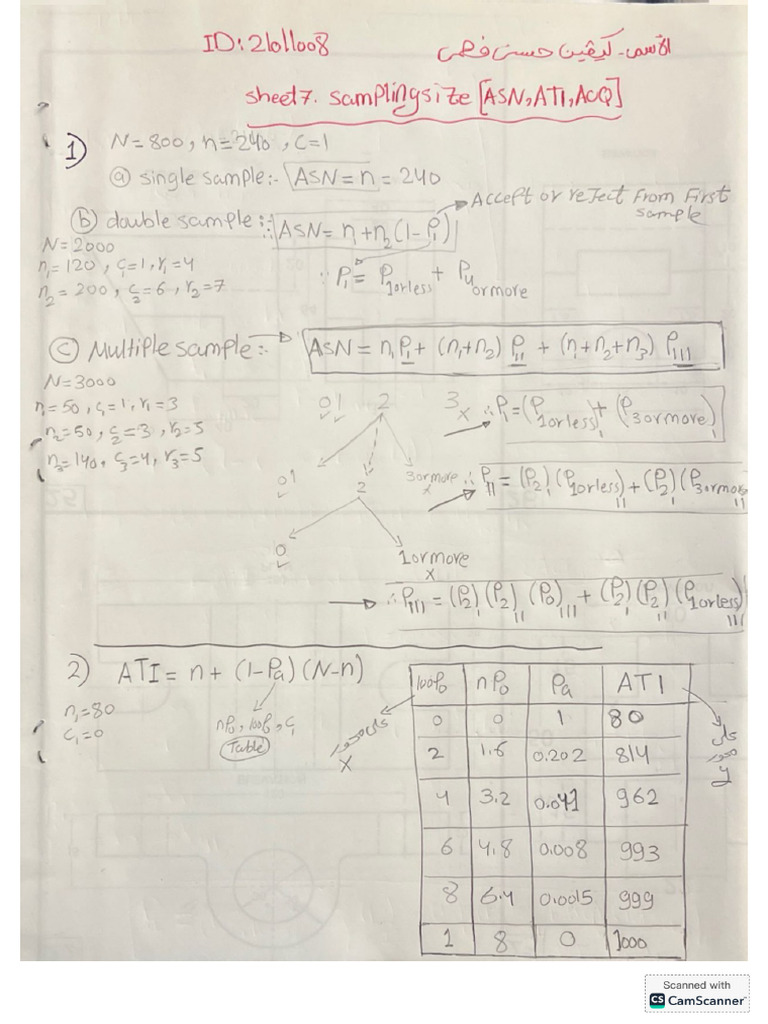 ID: 2101008
كيفين حسنى فهمى
sheet 7. sampling size [ASN, ATI, AOQ]
1) N = 800, n = 240, C = 1
ⓐ single sample:- ASN = n = 240
ⓑ double sample:- ASN = n₁ + n₂ (1 - P₁) → Accept or reject from First sample
N = 2000
n₁ = 120, c₁ = 1, r₁ = 4
n₂ = 200, c₂ = 6, r₂ = 7
∵ P₁ = P₁ or less + P₄ or more
ⓒ Multiple sample:- → ASN = n₁ P₁ + (n₁+n₂) P₁₁ + (n₁+n₂+n₃) P₁₁₁
N = 3000
n₁ = 50, c₁ = 1, r₁ = 3
n₂ = 50, c₂ = 3, r₂ = 5
n₃ = 140, c₃ = 4, r₃ = 5
0 1 2 3
✓ ✓ x
→ ∴ P₁ = (P₁ or less)₁ + (P₃ or more)₁
0 1 2 3 or more
✓ x
→ ∴ P₁₁ = (P₂)₁ (P₁ or less)₁₁ + (P₂)₁ (P₃ or more)₁₁
0 1 or more
✓ x
→ ∴ P₁₁₁ = (P₂)₁ (P₂)₁₁ (P₀)₁₁₁ + (P₂)₁ (P₂)₁₁ (P₁ or less)₁₁₁
2) ATI = n + (1 - Pa) (N - n)
n₁ = 80
c₁ = 0
nP₀, 100P₀, C₁
Table
على محور X
100P₀ nP₀ Pa ATI
0 0 1 80
2 1.6 0.202 814
4 3.2 0.041 962
6 4.8 0.008 993
8 6.4 0.0015 999
1 8 0 1000
على محور y
Scanned with
CS CamScanner